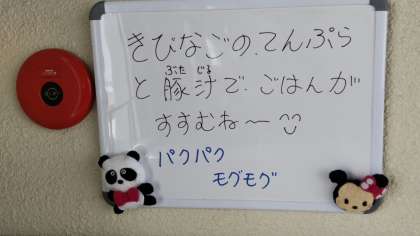 きびなごの、てんぷら
と豚汁で、ごはんが
ぶた じる
すすむね〜
パクパク
モグモグ